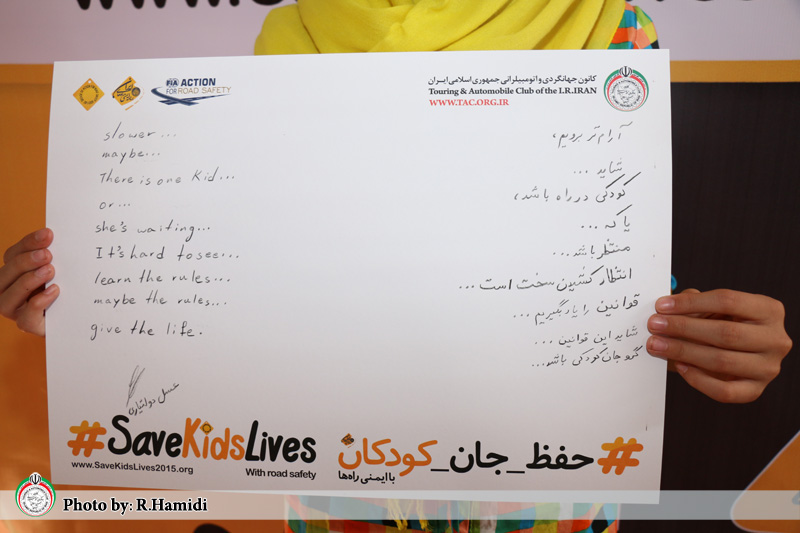 FIA ACTION
FOR ROAD SAFETY
کانون جهانگردی و اتومبیلرانی جمهوری اسلامی ایران
Touring & Automobile Club of the I.R.IRAN
WWW.TAC.ORG.IR
slower...
maybe...
There is one Kid...
or...
she's waiting...
It's hard to see...
learn the rules...
maybe the rules...
give the life.
آرام تر برویم،
شاید ...
کودکی در راه باشد،
یا که ...
منتظر باشد...
انتظار کشیدن سخت است ...
قوانین را یاد بگیریم ...
شاید این قوانین ...
گرو جان کودکی باشد...
عسل
#SaveKidsLives
www.SaveKidsLives2015.org
With road safety
#حفظ_جان_کودکان
با ایمنی راه‌ها
Photo by: R.Hamidi